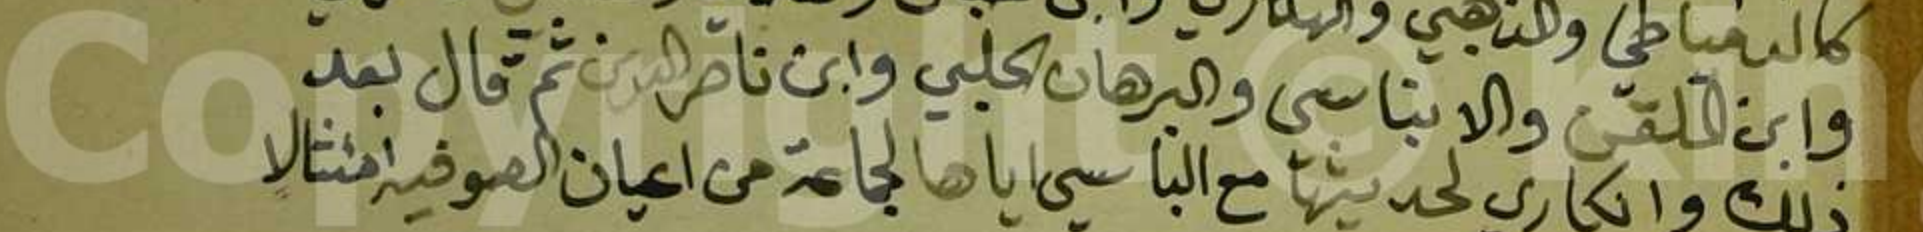 كالدمياطي والذهبي والهكاري وابن
وابن الملقن والابناسى والبرهان الحلبي وابن ناصر الدين ثم قال بعد
ذلك وانكاري لحديثها مع الباسى اياها لجماعة من اعيان الصوفيه امتثالا
Copyright © Kin